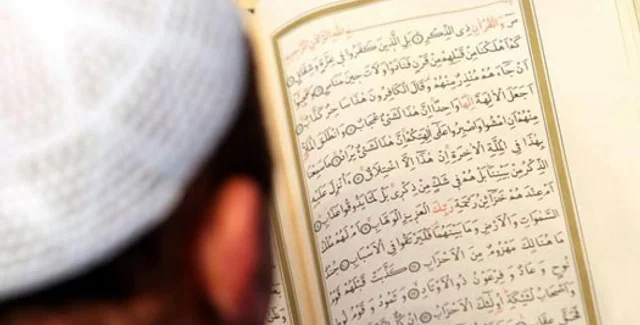 بِسْمِ اللهِ الرَّحْمٰنِ الرَّحِيمِ
صٓ وَالْقُرْاٰنِ ذِى الذِّكْرِ بَلِ الَّذِينَ كَفَرُوا فِى عِزَّةٍ وَشِقَاقٍ
كَمْ اَهْلَكْنَا مِنْ قَبْلِهِمْ مِنْ قَرْنٍ فَنَادَوْا وَلَاتَ حِينَ مَنَاصٍ وَعَجِبُوا
اَنْ جَٓاءَهُمْ مُنْذِرٌ مِنْهُمْ وَقَالَ الْكَافِرُونَ هٰذَا سَاحِرٌ كَذَّابٌ
اَجَعَلَ الْاٰلِهَةَ اِلٰهًا وَاحِدًا اِنَّ هٰذَا لَشَىْءٌ عُجَابٌ وَانْطَلَقَ الْمَلَاُ
مِنْهُمْ اَنِ امْشُوا وَاصْبِرُوا عَلٰٓى اٰلِهَتِكُمْ اِنَّ هٰذَا لَشَىْءٌ يُرَادُ مَا سَمِعْنَا
بِهٰذَا فِى الْمِلَّةِ الْاٰخِرَةِ اِنْ هٰذَٓا اِلَّا اخْتِلَاقٌ ءَاُنْزِلَ عَلَيْهِ
الذِّكْرُ مِنْ بَيْنِنَا بَلْ هُمْ فِى شَكٍّ مِنْ ذِكْرِى بَلْ لَمَّا يَذُوقُوا عَذَابِ
اَمْ عِنْدَهُمْ خَزَٓائِنُ رَحْمَةِ رَبِّكَ الْعَزِيزِ الْوَهَّابِ اَمْ لَهُمْ مُلْكُ
السَّمٰوَاتِ وَالْاَرْضِ وَمَا بَيْنَهُمَا فَلْيَرْتَقُوا فِى الْاَسْبَابِ جُنْدٌ
مَا هُنَالِكَ مَهْزُومٌ مِنَ الْاَحْزَابِ كَذَّبَتْ قَبْلَهُمْ قَوْمُ
نُوحٍ وَعَادٌ وَفِرْعَوْنُ ذُو الْاَوْتَادِ وَثَمُودُ وَقَوْمُ
وَاَصْحَابُ لْـَٔيْكَةِ اُولٰٓئِكَ الْاَحْزَابُ اِنْ كُلٌّ